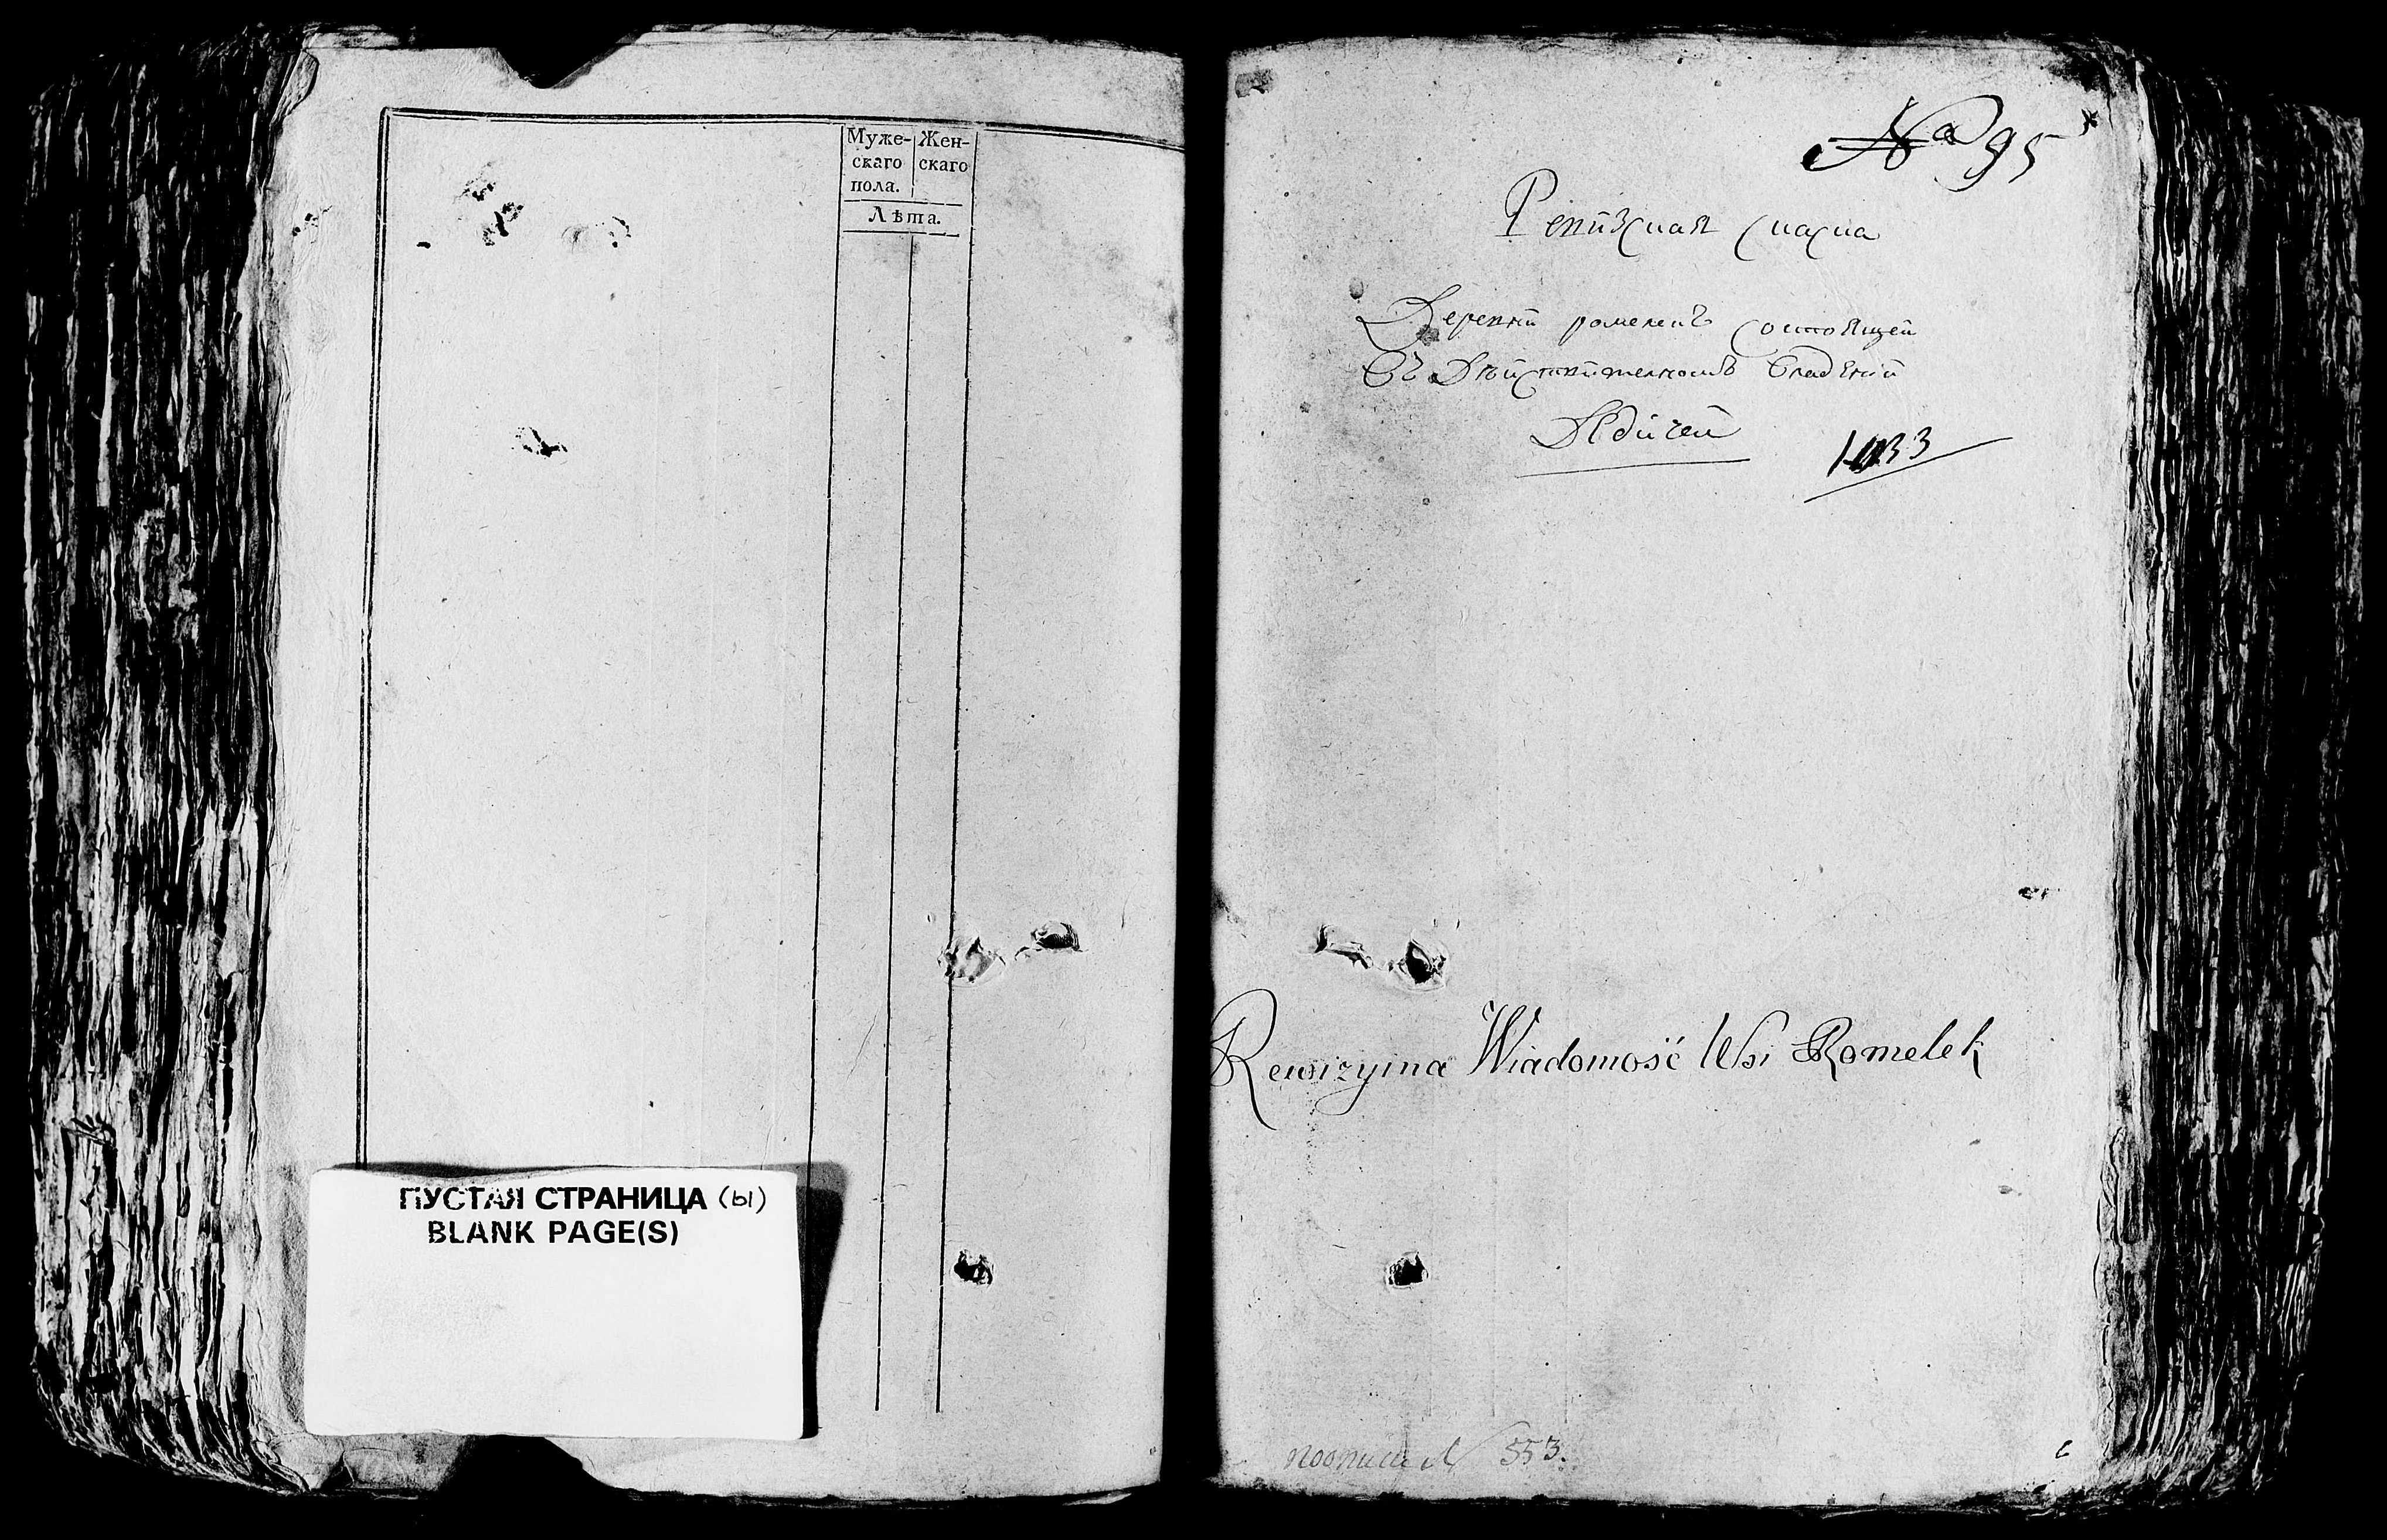 Муже-
скаго
пола.
Жен-
скаго
Лѣта.
ПУСТАЯ СТРАНИЦА (ы)
BLANK PAGE(S)
№ 95
Ревизская скаска
Деревни ромелекъ состоящей
Въ Дѣйствителномъ владѣнии
Дѣдичей
Rewizyina Wiadomość Wsi Romelek
поописи № 553.